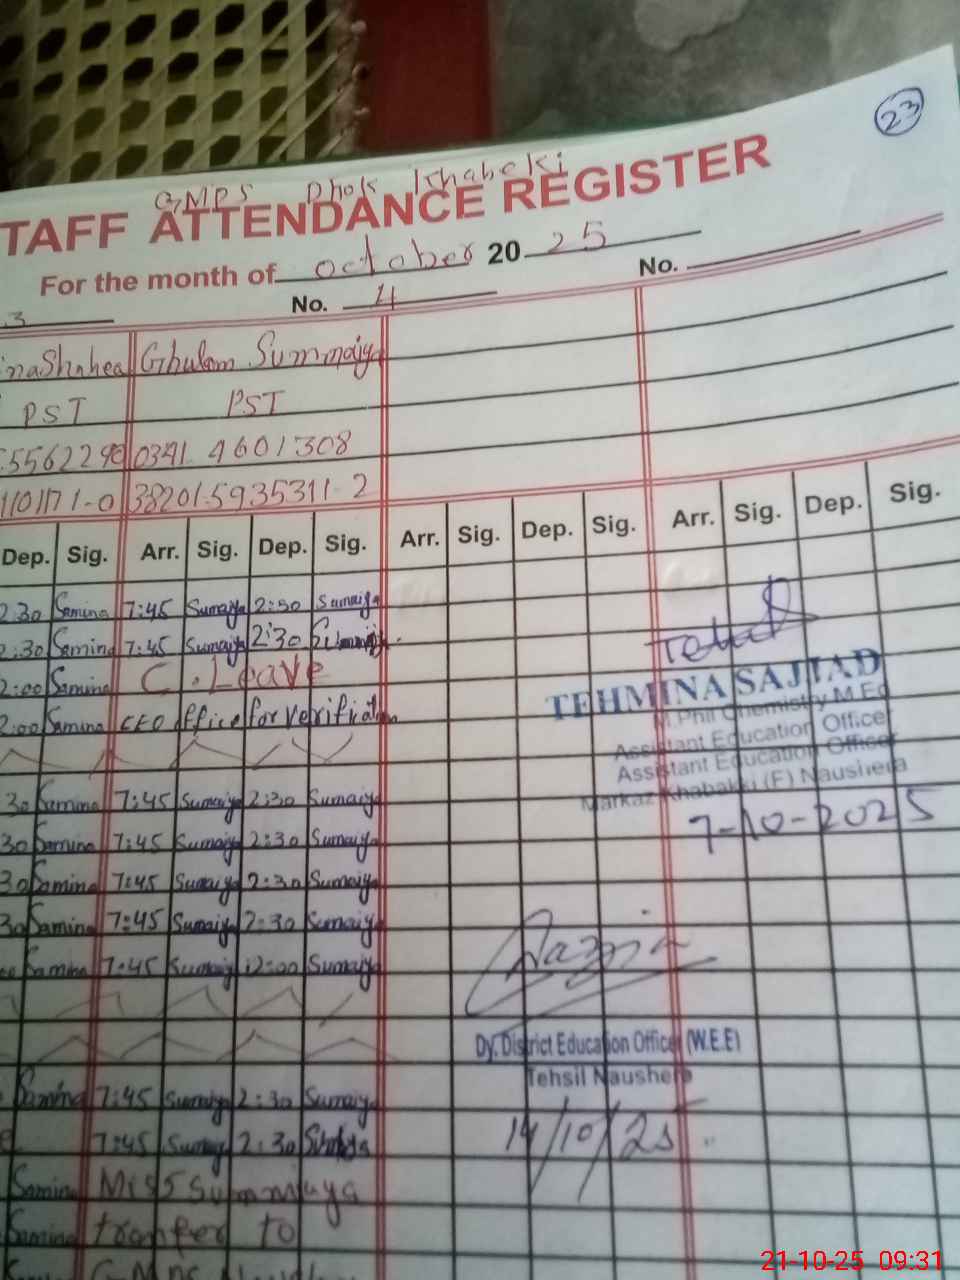 23
GMPS Dhok Khabeki
TAFF ATTENDANCE REGISTER
For the month of october 20 25
3 No. 4 No.
naShahee Ghulam Summaiya
PST PST
5562290 0341 4601308
110117 1-0 38201-5935311-2
Dep. Sig. Arr. Sig. Dep. Sig. Arr. Sig. Dep. Sig. Arr. Sig. Dep. Sig.
2:30 Samina 7:45 Sumaiya 2:30 Sumaiya
2:30 Samina 7:45 Sumaiya 2:30
2:00 Samina C.Leave
2:00 Samina CEO office for verification
TEHMINA SAJJAD
M.Phil Chemistry M.Ed
Assistant Education Officer
Assistant Education Officer
Markaz Khabakki (F) Naushera
30 Samina 7:45 Sumaiya 2:30 Sumaiya
7-10-2025
30 Samina 7:45 Sumaiya 2:30 Sumaiya
30 Samina 7:45 Sumaiya 2:30 Sumaiya
30 Samina 7:45 Sumaiya 2:30 Sumaiya
Samina 7:45 Sumaiya 12:00 Sumaiya
Dy. District Education Officer (W.E.E)
Tehsil Naushera
Samina 7:45 Sumaiya 2:30 Sumaiya
7:45 Sumaiya 2:30
14/10/25
Samina Miss Summiaya
Samina tranfer to
GMPS
21-10-25 09:31